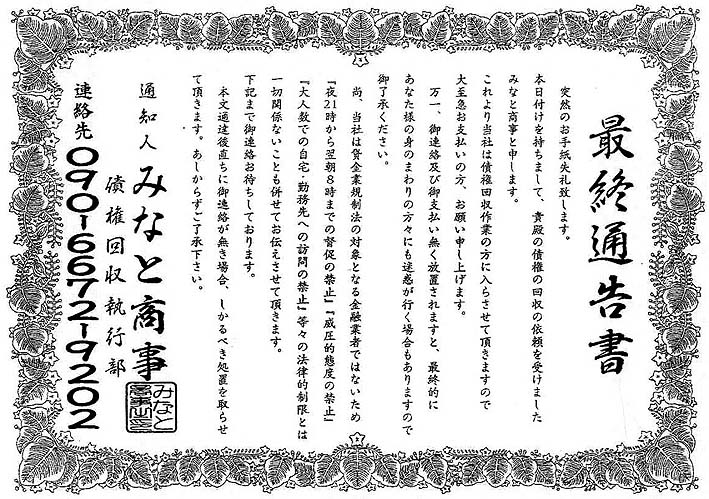 最終通告書
突然のお手紙失礼致します。
本日付けを持ちまして、貴殿の債権の回収の依頼を受けました
みなと商事と申します。
これより当社は債権回収作業の方に入らさせて頂きますので
大至急お支払いの方、お願い申し上げます。
万一、御連絡及び御支払い無く放置されますと、最終的に
あなた様の身のまわりの方々にも迷惑が行く場合もありますので
御了承ください。
尚、当社は貸金業規制法の対象となる金融業者ではないため
『夜21時から翌朝8時までの督促の禁止』『威圧的態度の禁止』
『大人数での自宅・勤務先への訪問の禁止』等々の法律的制限とは
一切関係ないことも併せてお伝えさせて頂きます。
下記まで御連絡お待ちしております。
本文通達後直ちに御連絡が無き場合、しかるべき処置を取らせ
て頂きます。あしからずご了承下さい。
通知人 みなと商事
みなと
商事之印
債権回収執行部
連絡先 090-6672-9202